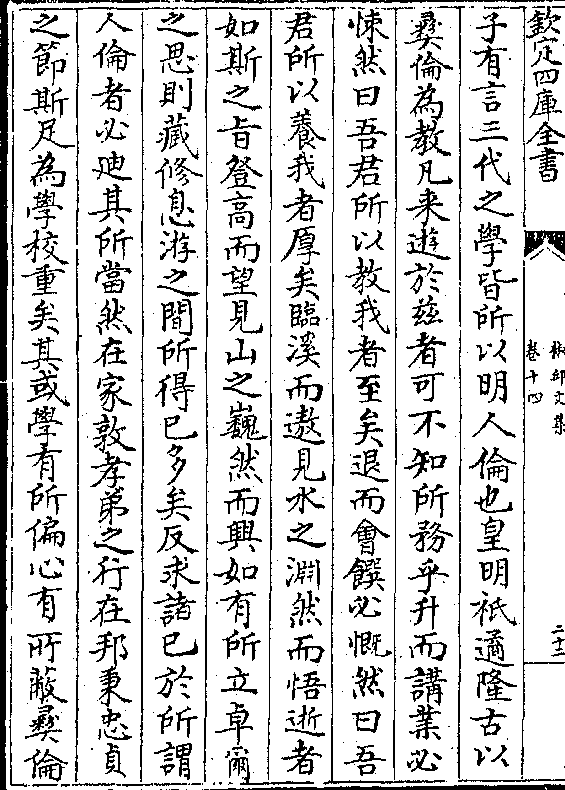 欽定四庫全書
椒邱文集
卷十四
二十二
子有言三代之學皆所以明人倫也皇明祇遹隆古以
彛倫為教凡来遊於兹者可不知所務乎升而講業必
悚然曰吾君所以教我者至矣退而會饌必慨然曰吾
君所以養我者厚矣臨溪而遨見水之淵然而悟逝者
如斯之㫖登高而望見山之巍然而興如有所立卓爾
之思則藏修息游之間所得已多矣反求諸已於所謂
人倫者必廸其所當然在家敦孝弟之行在邦秉忠貞
之節斯足為學校重矣其或學有所偏心有所蔽彛倫